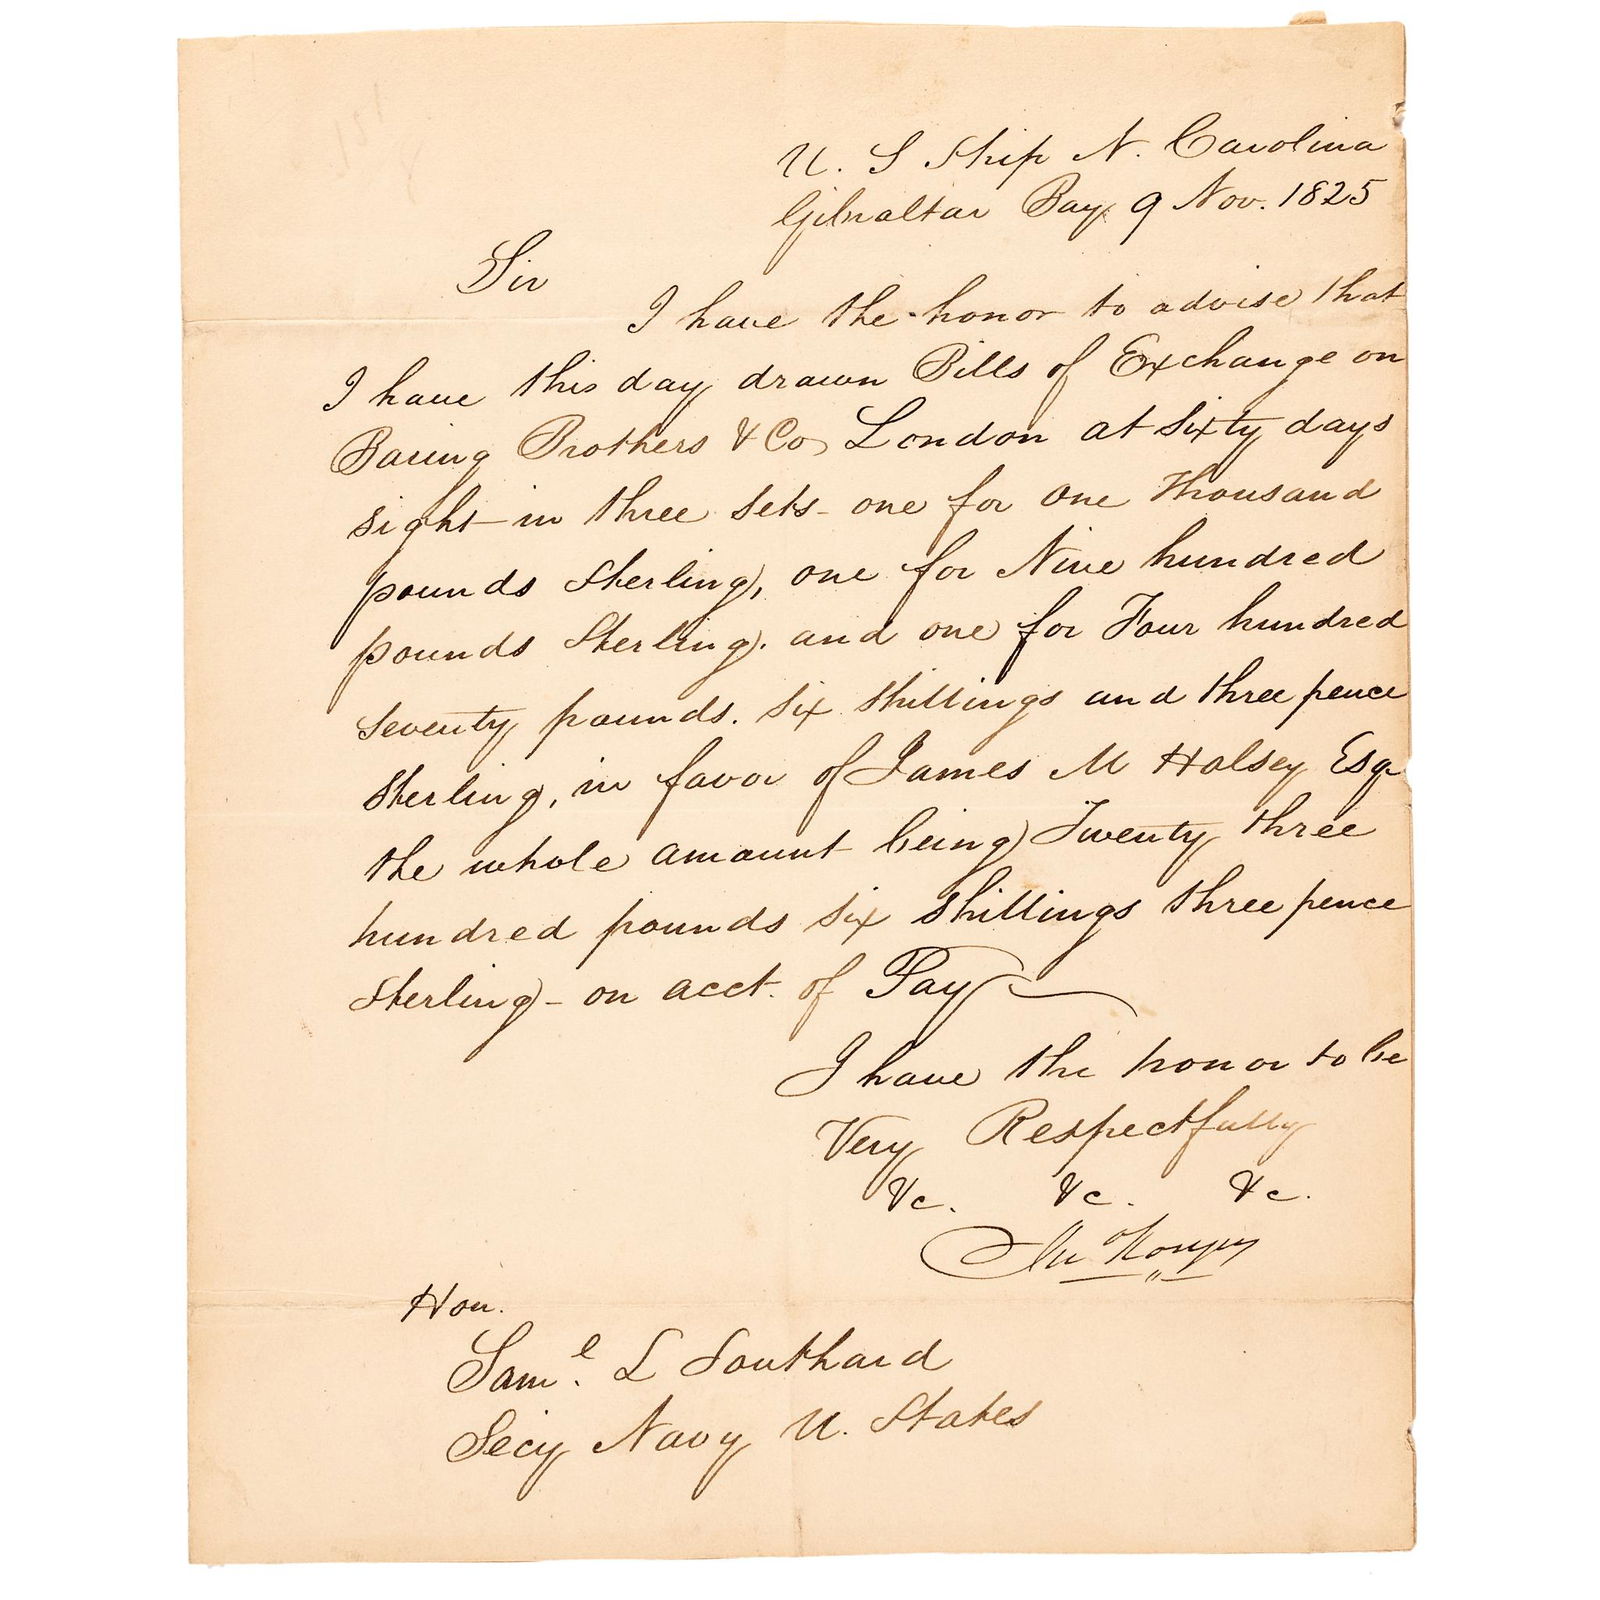 U. S Ship N. Carolina
Gibraltar Bay 9 Nov. 1825
Sir
I have the honor to advise that
I have this day drawn Bills of Exchange on
Baring Brothers & Co London at sixty days
sight in three sets - one for one thousand
pounds sterling, one for Nine hundred
pounds sterling. and one for Four hundred
seventy pounds. six shillings and three pence
sterling, in favor of James M Halsey Esqr
the whole amount being Twenty three
hundred pounds six shillings three pence
sterling - on acct. of Pay
I have the honor to be
Very Respectfully
&c. &c. &c.
Jn° Rodgers
Hon.
Saml. L Southard
Secy Navy U. States